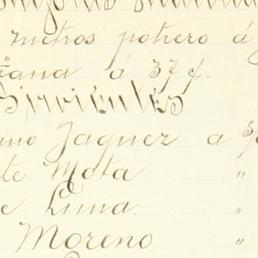 metros potrero á
á 37 f.
Sirvientes
Jaquez a
te Mota "
e Luna. "
Moreno "